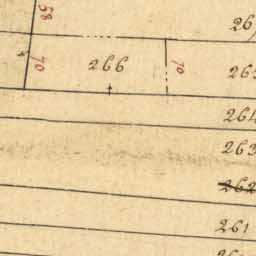 58
26
70
266
70
26
264
263
262
261